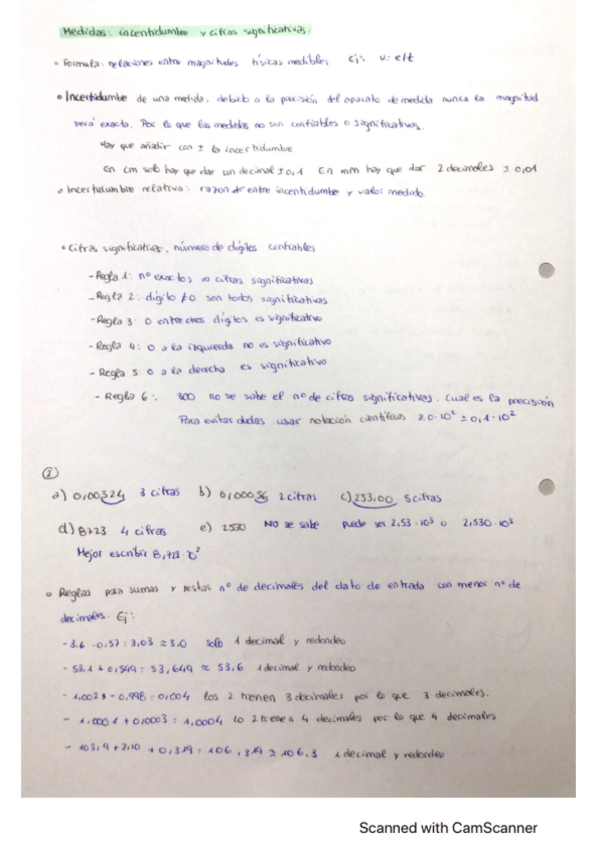 Medidas: incentidumbre y cifras significativas:
• Formula: relaciones entre magnitudes físicas medibles Ej: v: e/t
• Incertidumbre de una medida: debido a la precisión del aparato de medida nunca la magnitud
será exacta. Por lo que las medidas no son confiables o significativas.
Hay que añadir con ± la incertidumbre
En cm solo hay que dar un decimal ± 0,1 En mm hay que dar 2 decimales ± 0,01
• Incertidumbre relativa: razon de entre incentidumbre y valor medido.
• Cifras significativas, número de dígitos confiables
- Regla 1: nº exactos ∞ cifras significativas
- Regla 2: dígito ≠0 son todos significativas
- Regla 3: 0 entre otros dígitos es significativo
- Regla 4: 0 a la izquierda no es significativo
- Regla 5 0 a la derecha es significativo
- Regla 6: 300 no se sabe el nº de cifras significativas. Cual es la precisión
Para evitar dudas usar notación científica 3,0·10² ± 0,1·10²
②
a) 0,00324 3 cifras b) 0,00056 2 cifras c) 253,00 5 cifras
d) 8723 4 cifras e) 2530 NO se sabe puede ser 2,53·10³ o 2,530·10³
Mejor escribir 8,723·10³
• Reglas para sumas y restas nº de decimales del dato de entrada con menor nº de
decimales. Ej:
- 3.6 - 0,57 = 3,03 ≈ 3.0 solo 1 decimal y redondeo
- 53.1 + 0,549 = 53,649 ≈ 53.6 1 decimal y redondeo
- 1,002 - 0,998 = 0,004 los 2 tienen 3 decimales por lo que 3 decimales.
- 1,0001 + 0,0003 = 1,0004 Lo 2 tienen 4 decimales por lo que 4 decimales
- 103,9 + 2,10 + 0,319 = 106,319 ≈ 106.3 1 decimal y redondeo
Scanned with CamScanner